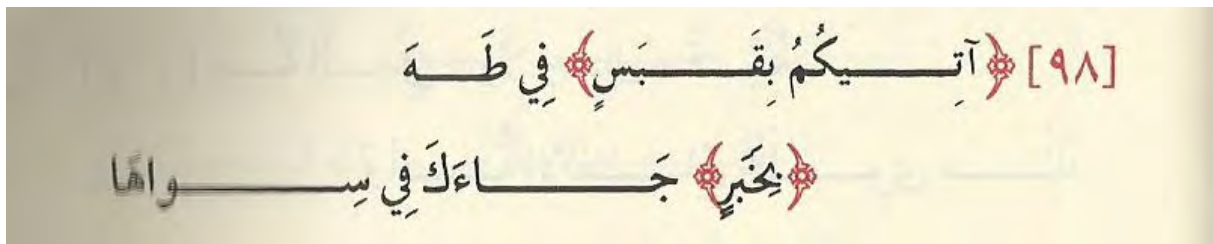 [٩٨] ﴿آتِيكُمُ بِقَبَسٍ﴾ فِي طَهَ
﴿بِخَبَرٍ﴾ جَاءَكَ فِي سِوَاهَا